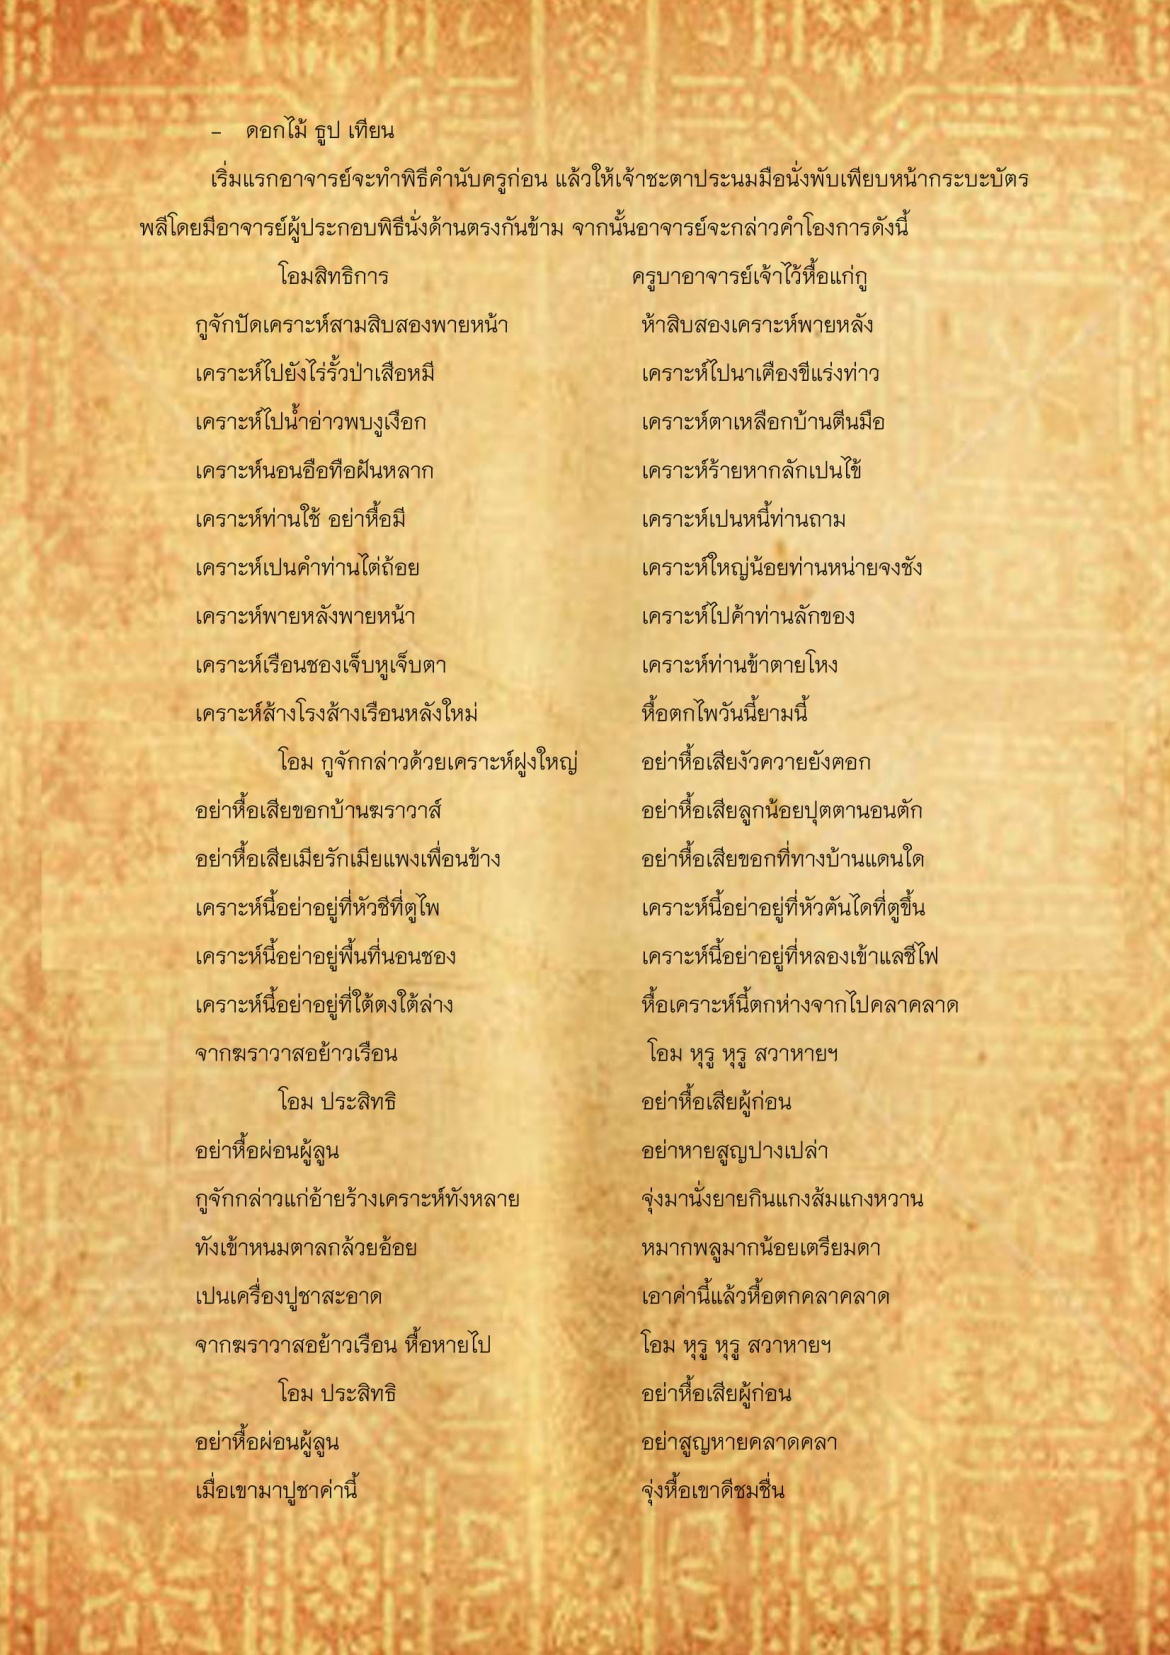 – ดอกไม้ ธูป เทียน
เริ่มแรกอาจารย์จะทำพิธีคำนับครูก่อน แล้วให้เจ้าชะตาประนมมือนั่งพับเพียบหน้ากระบะบัตร
พลีโดยมีอาจารย์ผู้ประกอบพิธีนั่งด้านตรงกันข้าม จากนั้นอาจารย์จะกล่าวคำโองการดังนี้
โอมสิทธิการ ครูบาอาจารย์เจ้าไว้หื้อแก่กู
กูจักปัดเคราะห์สามสิบสองพายหน้า ห้าสิบสองเคราะห์พายหลัง
เคราะห์ไปยังไร่รั้วป่าเสือหมี เคราะห์ไปนาเคืองขีแร่งท่าว
เคราะห์ไปน้ำอ่าวพบงูเงือก เคราะห์ตาเหลือกบ้านตีนมือ
เคราะห์นอนอือทือฝันหลาก เคราะห์ร้ายหากลักเปนไข้
เคราะห์ท่านใช้ อย่าหื้อมี เคราะห์เปนหนี้ท่านถาม
เคราะห์เปนคำท่านไต่ถ้อย เคราะห์ใหญ่น้อยท่านหน่ายจงชัง
เคราะห์พายหลังพายหน้า เคราะห์ไปค้าท่านลักของ
เคราะห์เรือนชองเจ็บหูเจ็บตา เคราะห์ท่านข้าตายโหง
เคราะห์ส้างโรงส้างเรือนหลังใหม่ หื้อตกไพวันนี้ยามนี้
โอม กูจักกล่าวด้วยเคราะห์ฝูงใหญ่ อย่าหื้อเสียงัวควายยังตอก
อย่าหื้อเสียขอกบ้านฆราวาส์ อย่าหื้อเสียลูกน้อยปุตตานอนตัก
อย่าหื้อเสียเมียรักเมียแพงเพื่อนข้าง อย่าหื้อเสียขอกที่ทางบ้านแดนใด
เคราะห์นี้อย่าอยู่ที่หัวชีที่ตูไพ เคราะห์นี้อย่าอยู่ที่หัวคันไดที่ตูขึ้น
เคราะห์นี้อย่าอยู่พื้นที่นอนชอง เคราะห์นี้อย่าอยู่ที่หลองเข้าแลชีไฟ
เคราะห์นี้อย่าอยู่ที่ใต้ตงใต้ล่าง หื้อเคราะห์นี้ตกห่างจากไปคลาคลาด
จากฆราวาสอย้าวเรือน โอม หุรู หุรู สวาหายฯ
โอม ประสิทธิ อย่าหื้อเสียผู้ก่อน
อย่าหื้อผ่อนผู้ลูน อย่าหายสูญปางเปล่า
กูจักกล่าวแก่อ้ายร้างเคราะห์ทังหลาย จุ่งมานั่งยายกินแกงส้มแกงหวาน
ทังเข้าหนมตาลกล้วยอ้อย หมากพลูมากน้อยเตรียมดา
เปนเครื่องปูชาสะอาด เอาค่านี้แล้วหื้อตกคลาคลาด
จากฆราวาสอย้าวเรือน หื้อหายไป โอม หุรู หุรู สวาหายฯ
โอม ประสิทธิ อย่าหื้อเสียผู้ก่อน
อย่าหื้อผ่อนผู้ลูน อย่าสูญหายคลาดคลา
เมื่อเขามาปูชาค่านี้ จุ่งหื้อเขาดีชมชื่น